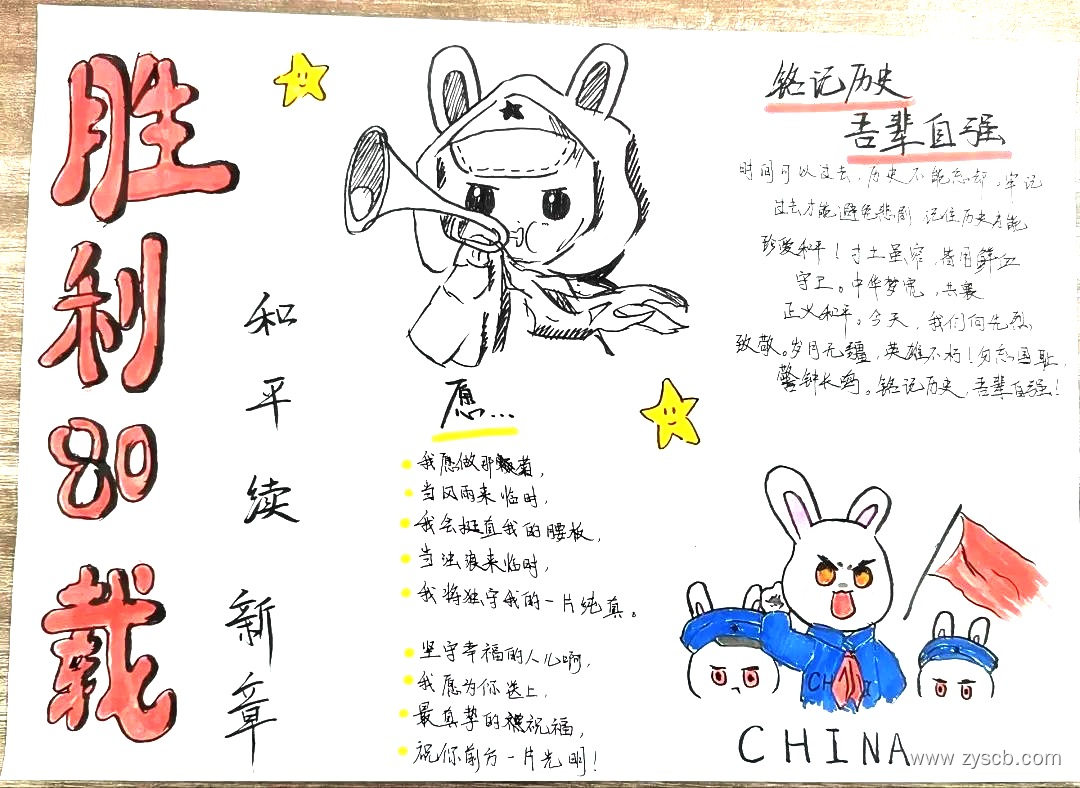 胜利80载
和平续新章
铭记历史
吾辈自强
时间可以过去,历史不能忘却,牢记
过去才能避免悲剧 记住历史才能
珍爱和平!寸土虽窄,皆用鲜血
守卫。中华梦宽,共襄
正义和平。今天,我们向先烈
致敬。岁月无疆,英雄不朽!勿忘国耻,
警钟长鸣。铭记历史,吾辈自强!
愿...
我愿做那菊,
当风雨来临时,
我会挺直我的腰板,
当浊浪来临时,
我将独守我的一片纯真。
坚守幸福的人儿啊,
我愿为你送上,
最真挚的祝福,
祝你前方一片光明!
CHINA
www.zyscb.com